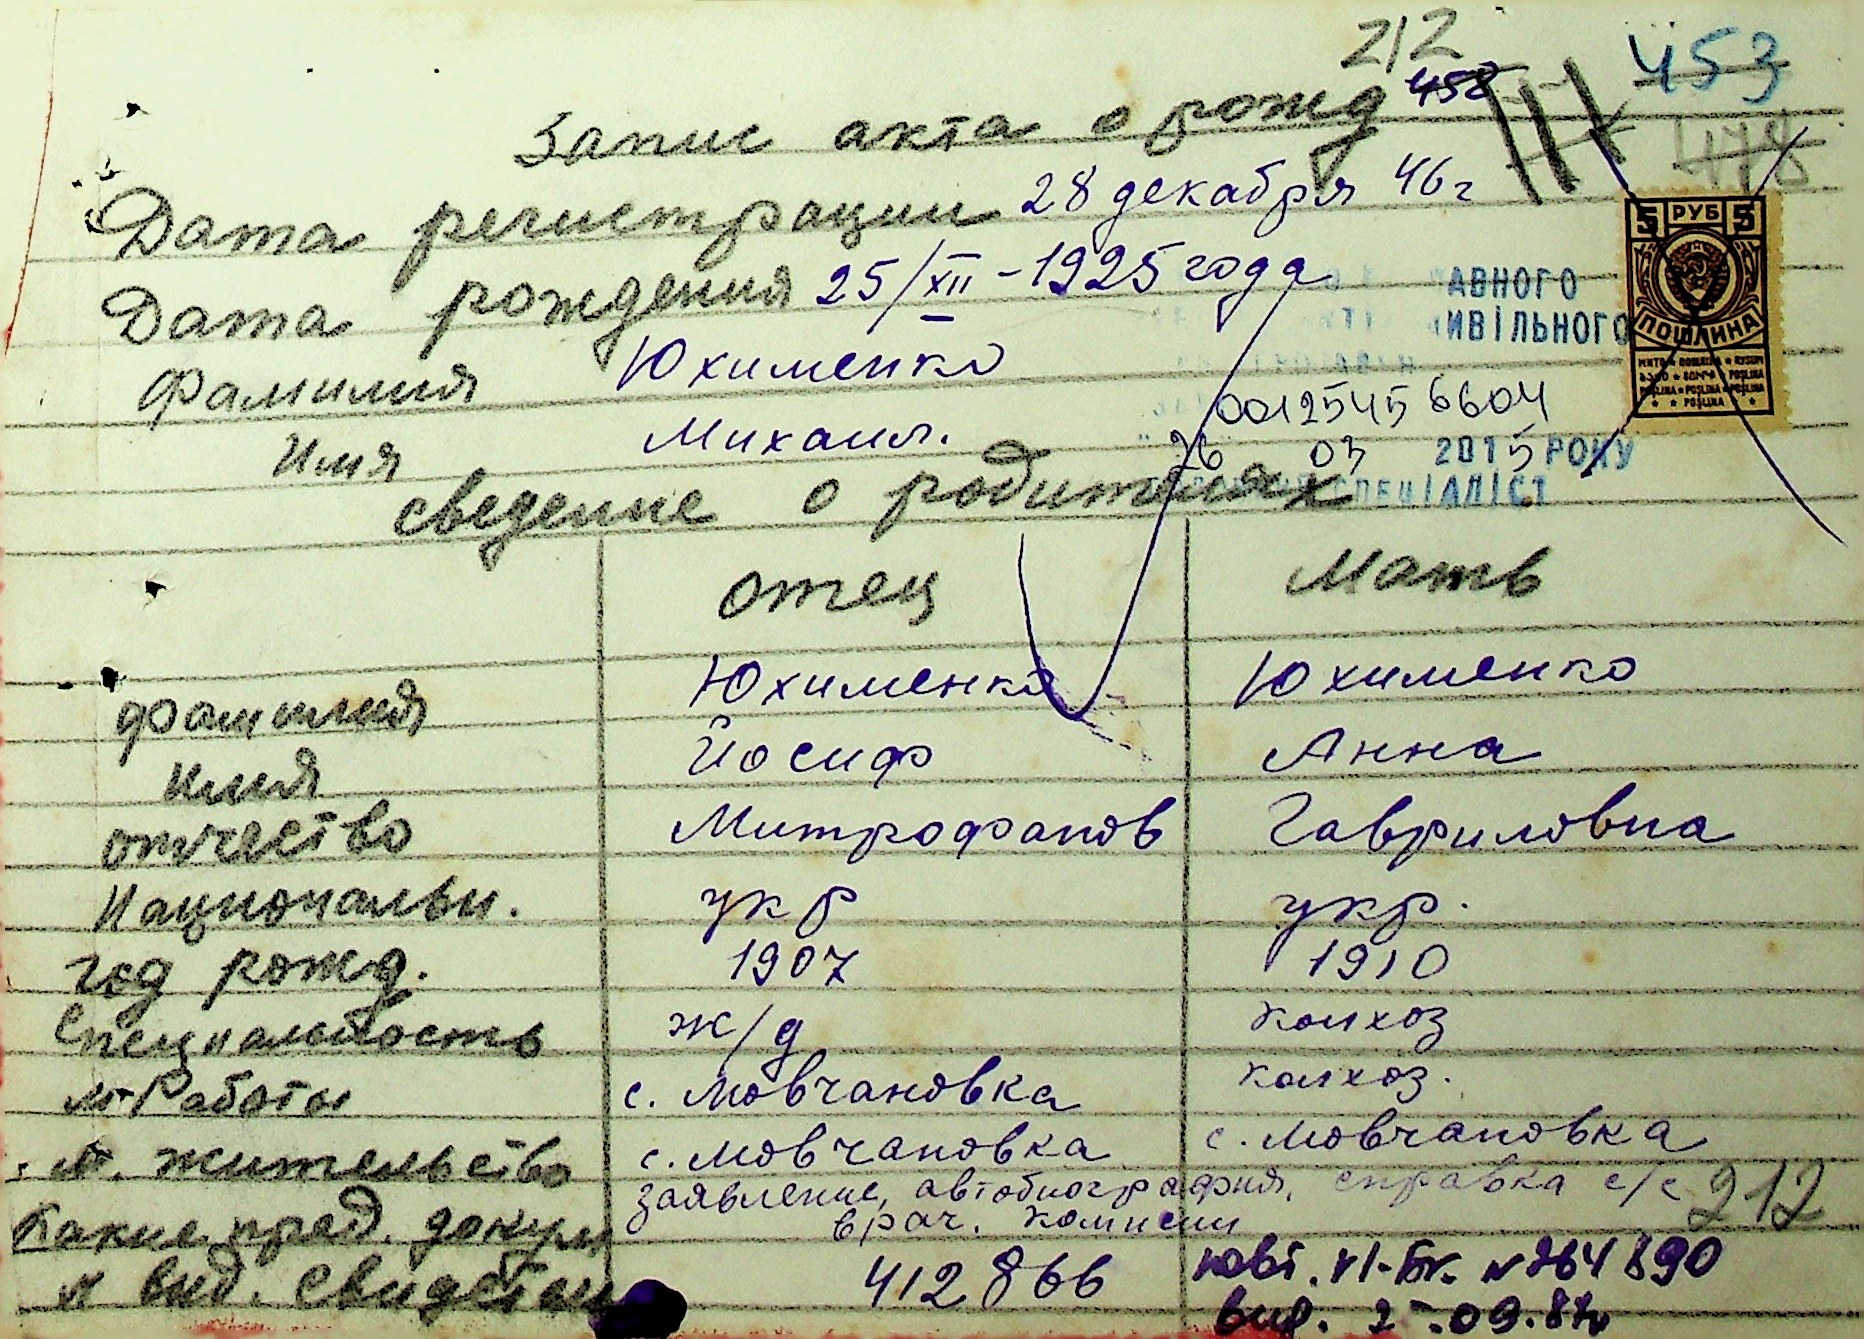 212
453
458
478
Запис акта о рожд
Дата регистрации 28 декабря 46 г
5 РУБ 5
Дата рождения 25/XII - 1925 года
АВНОГО
ИВІЛЬНОГО
ПОШЛИНА
Фамилия Юхименко
POŞLINA
0012545 6604
Имя Михаил.
26 03 2015 РОКУ
СПЕЦІАЛІСТ
сведение о родителях
отец Мать
фамилия Юхименко Юхименко
имя Йосиф Анна
отчество Митрофанов Гавриловна
Национальн. укр укр.
год рожд. 1907 1910
Специальность ж/д колхоз
м Работы с. Мовчановка колхоз.
м. жительство с. Мовчановка с. Мовчановка
Какие пред. докум заявление, автобиография, справка с/с 212
врач. комисии
N вид. свидетел 412866 повт. VI-БК. N 264890
вид. 2 .09.87г